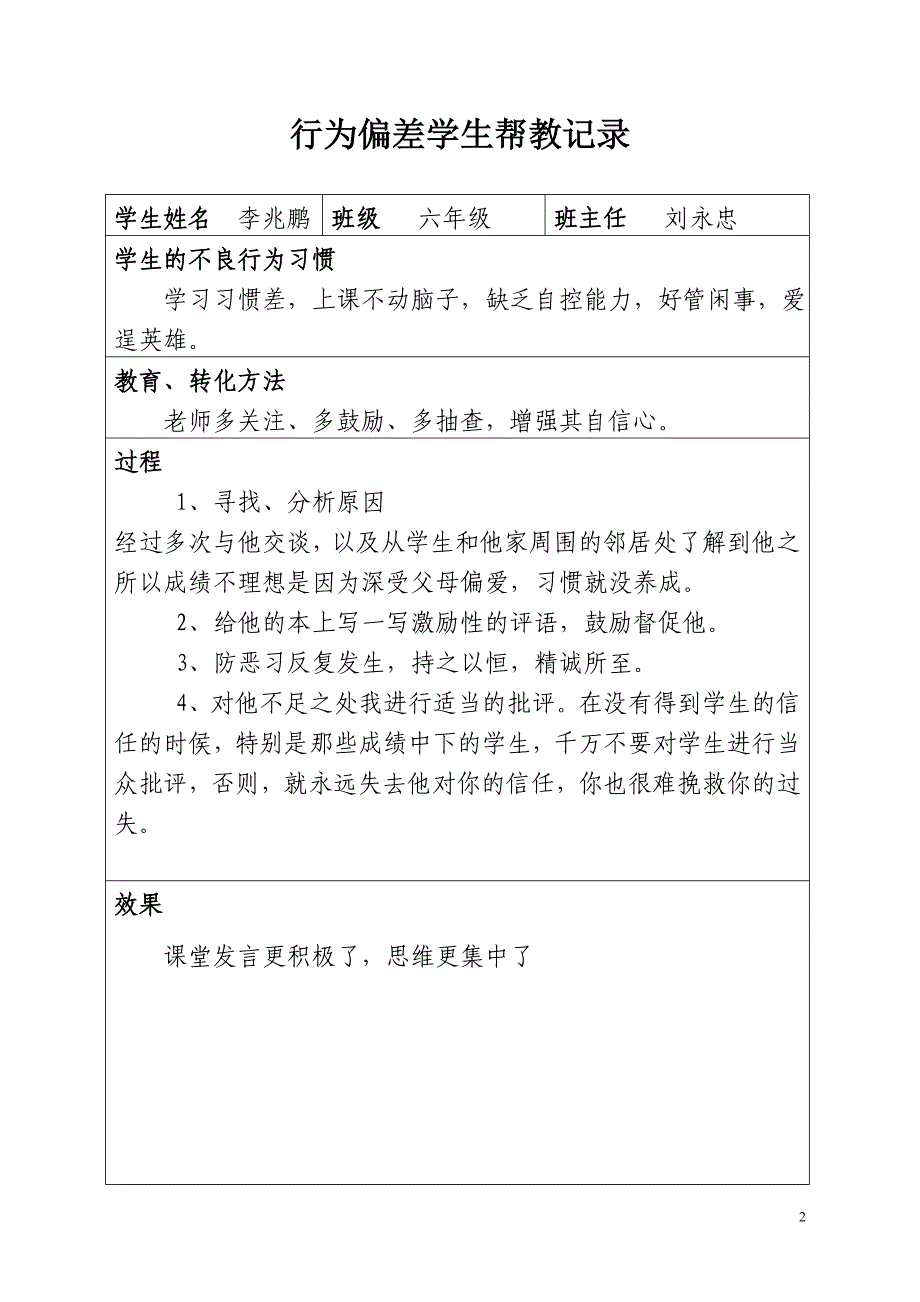 行为偏差学生帮教记录
学生姓名 李兆鹏 班级 六年级 班主任 刘永忠
学生的不良行为习惯
学习习惯差，上课不动脑子，缺乏自控能力，好管闲事，爱
逞英雄。
教育、转化方法
老师多关注、多鼓励、多抽查，增强其自信心。
过程
1、寻找、分析原因
经过多次与他交谈，以及从学生和他家周围的邻居处了解到他之
所以成绩不理想是因为深受父母偏爱，习惯就没养成。
2、给他的本上写一写激励性的评语，鼓励督促他。
3、防恶习反复发生，持之以恒，精诚所至。
4、对他不足之处我进行适当的批评。在没有得到学生的信
任的时侯，特别是那些成绩中下的学生，千万不要对学生进行当
众批评，否则，就永远失去他对你的信任，你也很难挽救你的过
失。
效果
课堂发言更积极了，思维更集中了
2